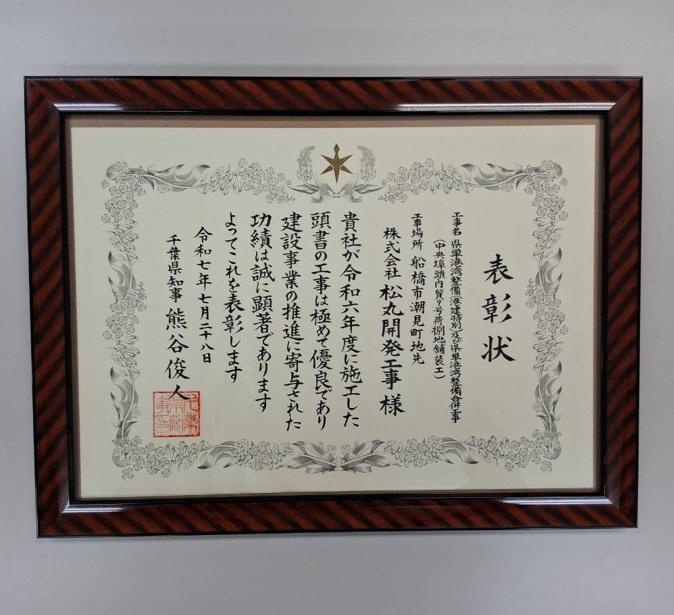 表彰状
工事名 県単港湾整備(准建特別)及び県単港湾整備合併工事
(中央埠頭内貿9号荷捌地舗装工)
工事場所 船橋市潮見町地先
株式会社 松丸開発工事 様
貴社が令和六年度に施工した
頭書の工事は極めて優良であり
建設事業の推進に寄与された
功績は誠に顕著であります
よってこれを表彰します
令和七年七月二十八日
千葉県知事 熊谷俊人